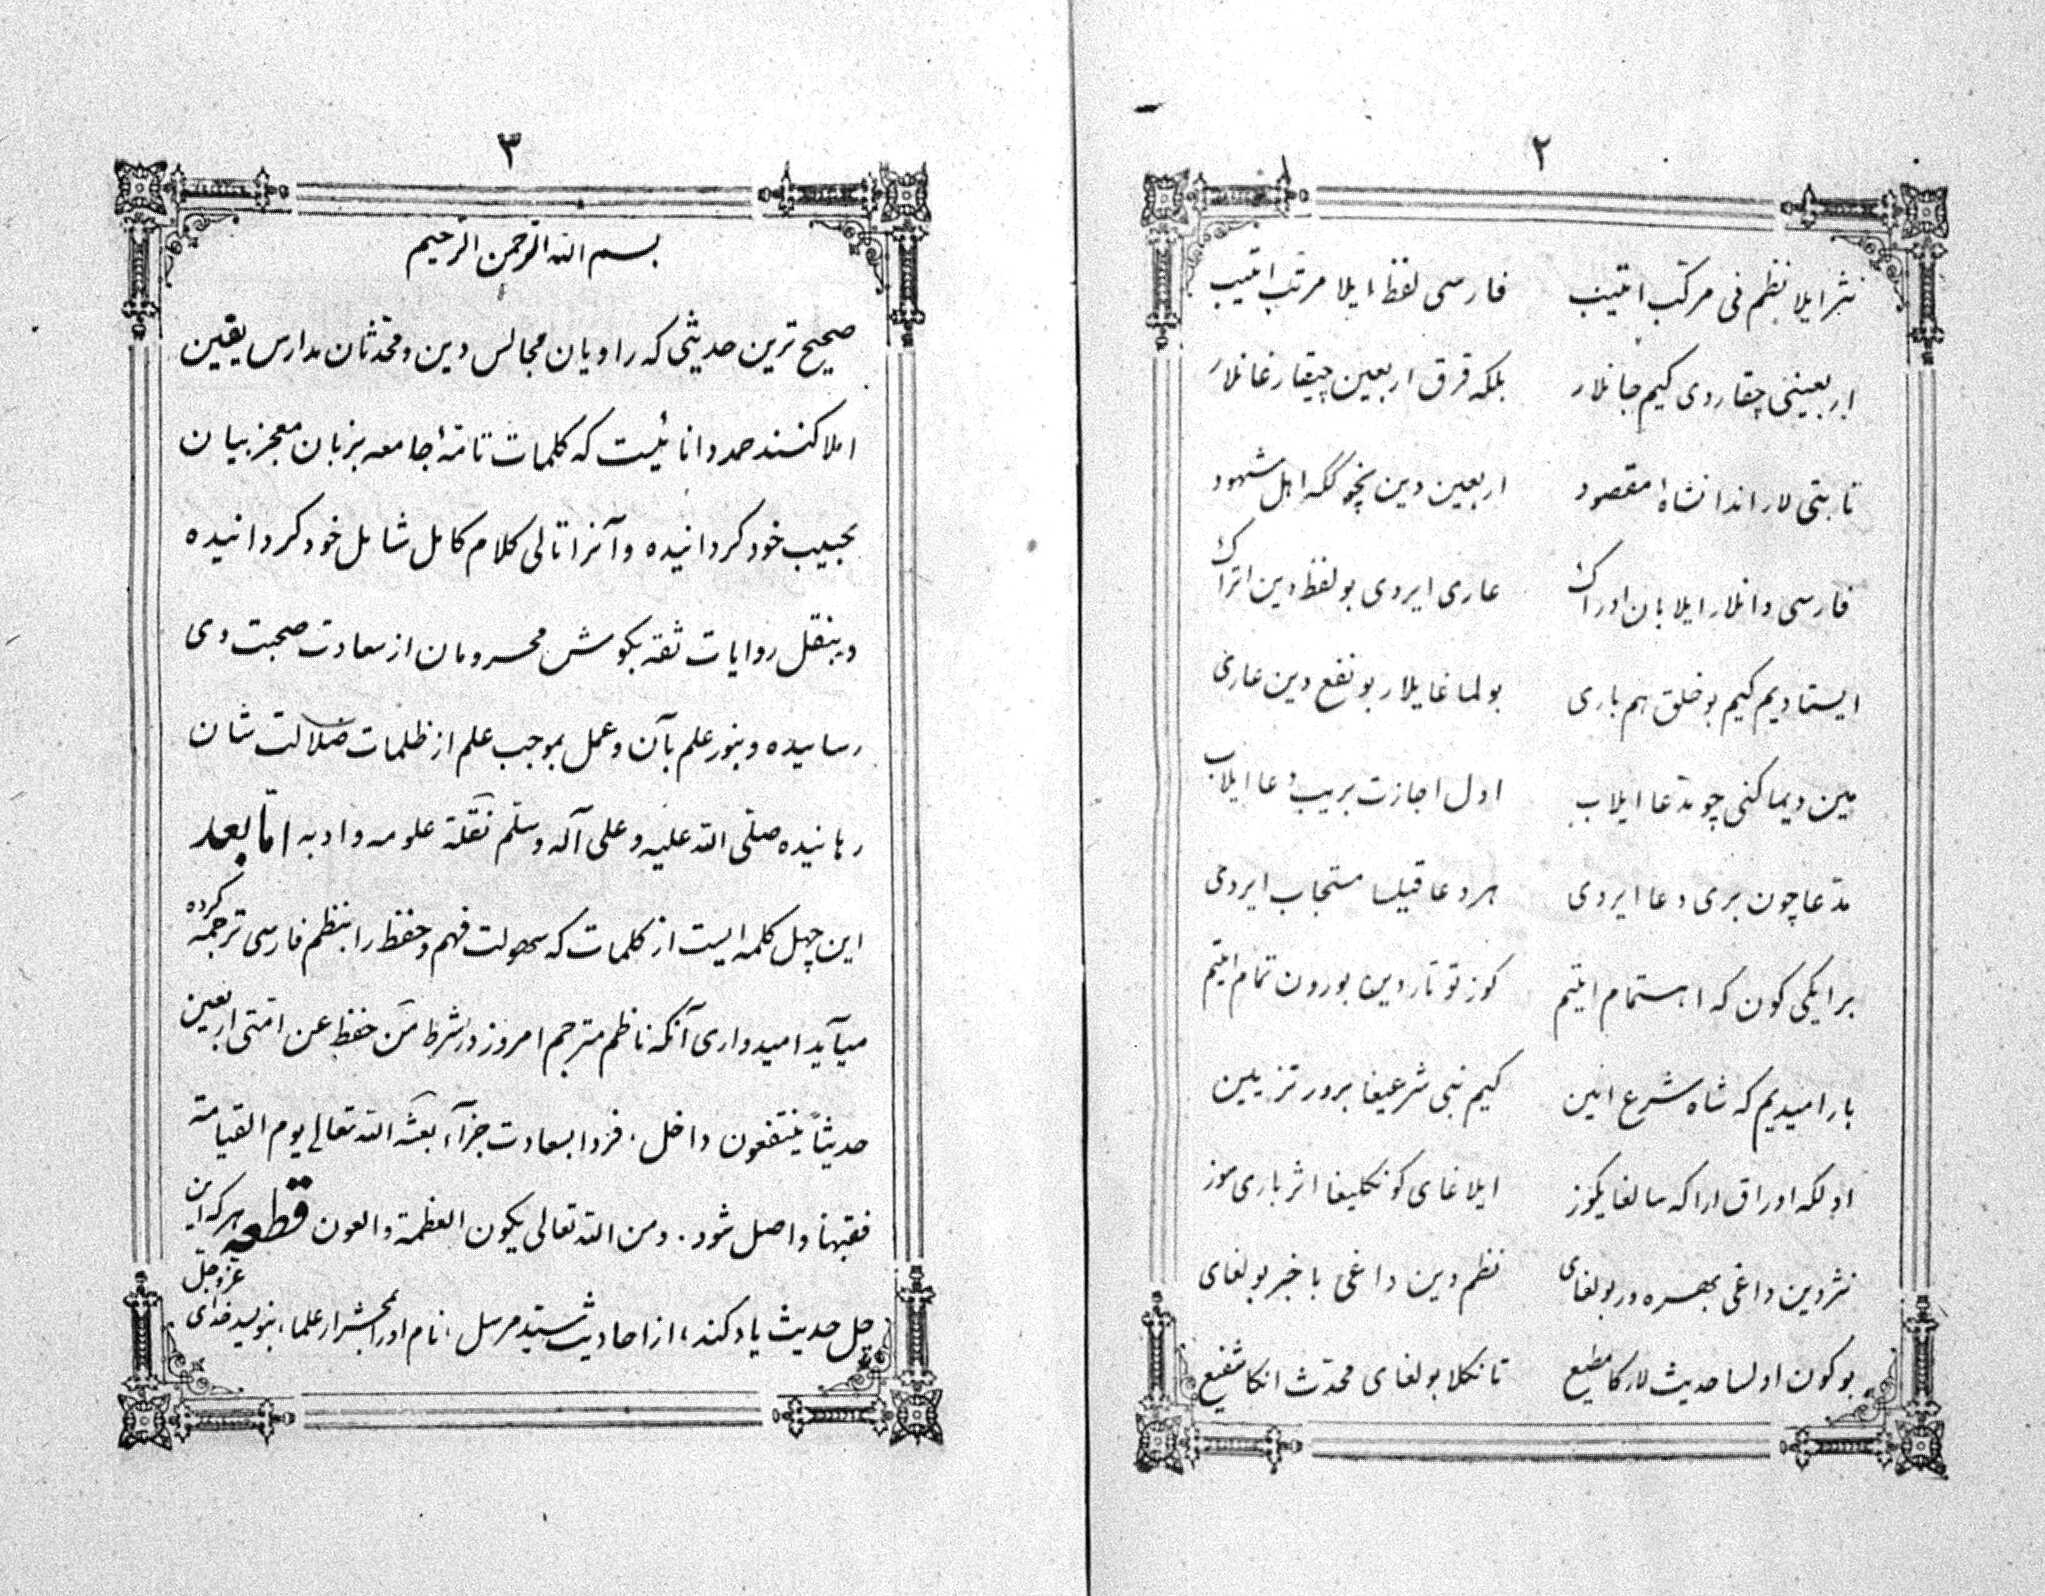 ۲
نثر ایلا نظم نی مرکب ایتیب فارسی لفظ ایلا مرتب ایتیب
اربعینی چقاردی کیم جانلار بلکه قرق اربعین چیقارغانلار
تابتی لار اندا نشاهٔ مقصود اربعین دین نچوککه اهل شهود
فارسی دانلار ایلابان ادراک عاری ایردی بو لفظ دین اتراک
ایستادیم کیم بو خلق هم باری بولماغایلار بو نفع دین عاری
مین دیماکنی چو مدعا ایلاب اول اجازت بریب دعا ایلاب
مدعا چون بری دعا ایردی هر دعا قیلسا مستجاب ایردی
بر ایکی کون که اهتمام ایتیم کوز توتاردین بورون تمام ایتیم
بار امیدیم که شاه شرع ائین کیم نبی شرعیغا برور تزیین
اولکه اوراق ارا که سالغای کوز ایلاغای کونکلیغا اثر باری سوز
نثر دین داغی بهره ور بولغای نظم دین داغی با خبر بولغای
بو کون اولسا حدیث لارکا مطیع تانکلا بولغای محدث انکا شفیع
۳
بسم الله الرحمن الرحیم
صحیح ترین حدیثی که راویان مجالس دین و محدثان مدارس یقین
املا کنند حمد دانائیست که کلمات تامهٔ جامعه بر زبان معجز بیان
بحبیب خود کردانیده و آنرا تالی کلام کامل شامل خود کردانیده
و بنقل روایات ثقه بکوش محرومان از سعادت صحبت وی
رسانیده و بنور علم بآن و عمل بموجب علم از ظلمات ضلالت شان
رهانیده صلی الله علیه و علی آله و سلم نقلة علومه و ادبه اما بعد
این چهل کلمه ایست از کلمات که سهولت فهم و حفظ را بنظم فارسی ترجمه کرده
میآید امیدواری آنکه ناظم مترجم امروز در شرط من حفظ عن امتی اربعین
حدیثاً ینتفعون داخل فردا بسعادت جزآء بعثه الله تعالی یوم القیامة
فقیهاً واصل شود. و من الله تعالی یکون العظمة و العون قطعه هر که این
چل حدیث یاد کند، از احادیث سید مرسل، نام او را بحشر از علما، بنویسد خدای عز و جل